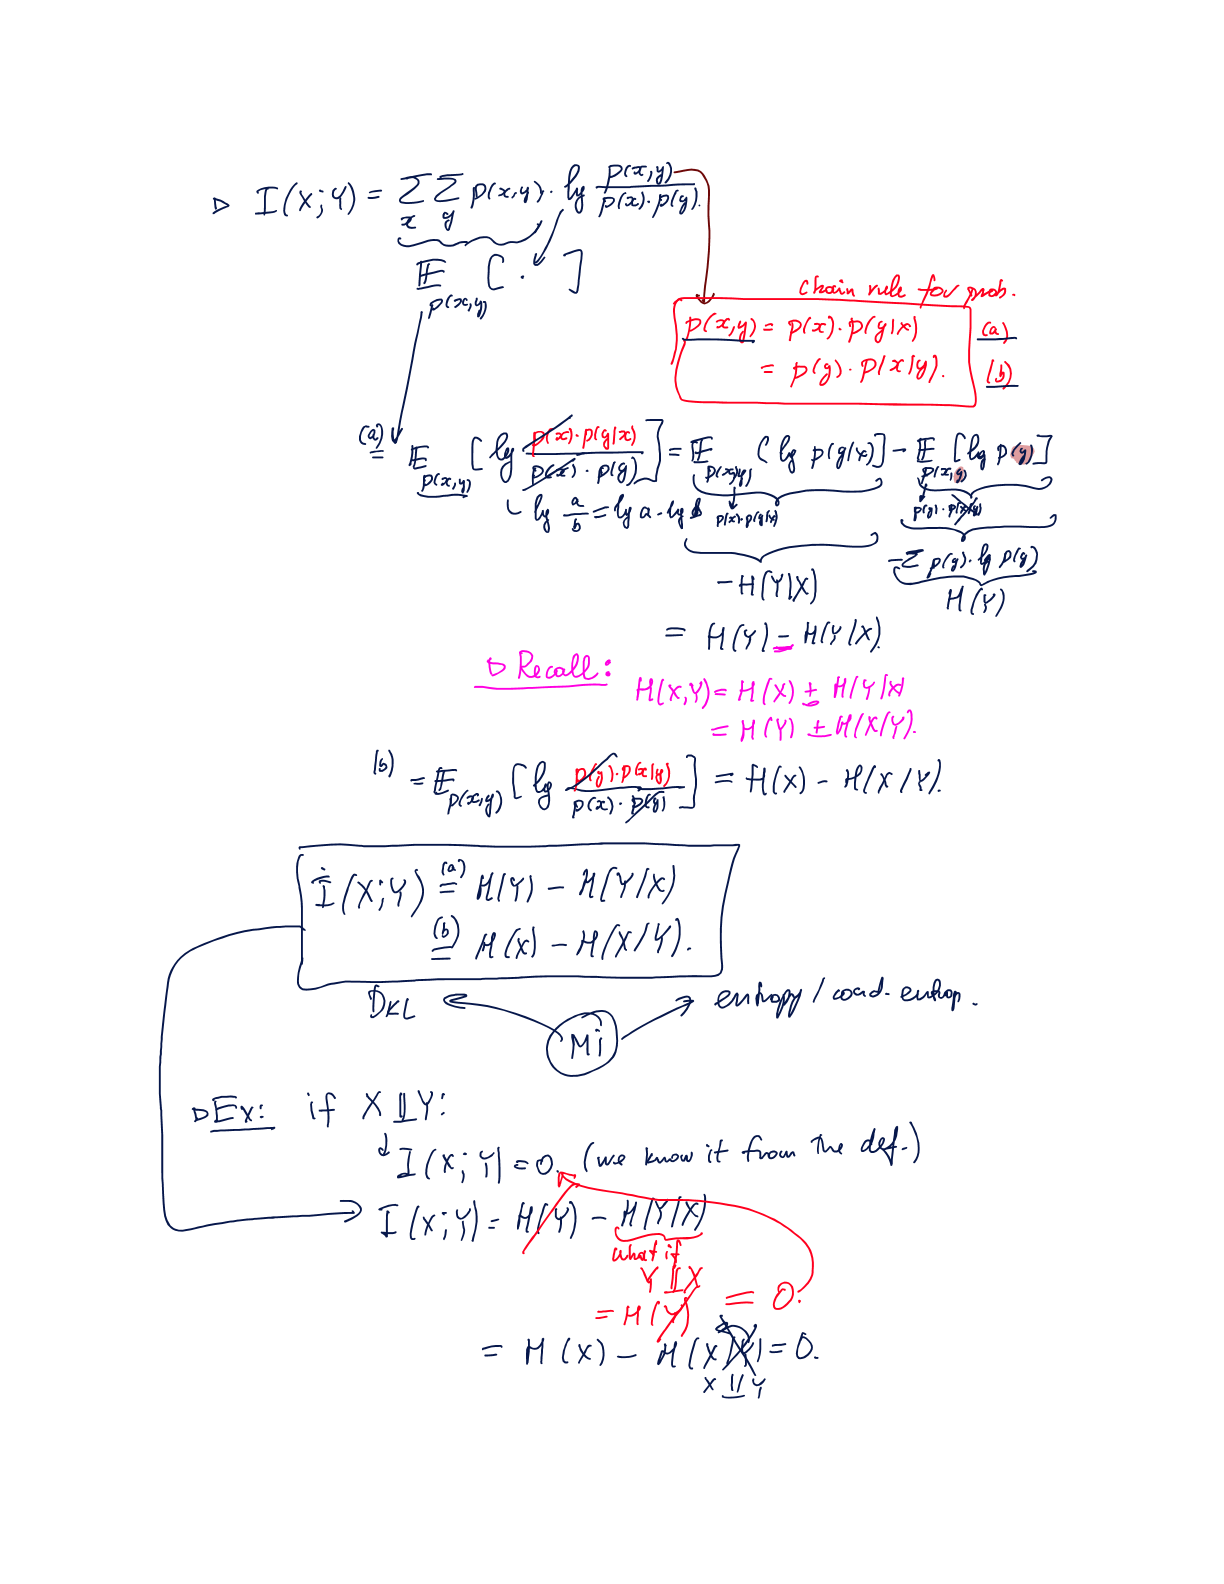 ▷ I(X;Y) = Σ_x Σ_y p(x,y) · lg p(x,y) / p(x)·p(y).
𝔼_p(x,y) [ · ]
chain rule for prob.
p(x,y) = p(x)·p(y|x) (a)
= p(y)·p(x|y). (b)
(a) = 𝔼_p(x,y) [ lg p(x)·p(y|x) / p(x)·p(y) ] = 𝔼_p(x,y) [ lg p(y|x) ] − 𝔼_p(x,y) [ lg p(y) ]
lg a/b = lg a - lg b p(x)·p(y|x) p(y)·p(x|y)
−H(Y|X) −Σ p(y)·lg p(y)
H(Y)
= H(Y) − H(Y|X).
▷ Recall:
H(X,Y) = H(X) ± H(Y|X)
= H(Y) ± H(X|Y).
(b) = 𝔼_p(x,y) [ lg p(y)·p(x|y) / p(x)·p(y) ] = H(X) − H(X|Y).
I(X;Y) (a)= H(Y) − H(Y|X)
(b)= H(X) − H(X|Y).
D_KL entropy / cond. entrop.
Mi
▷ Ex: if X ⫫ Y:
I(X;Y) = 0. (we know it from the def.)
I(X;Y) = H(Y) − H(Y|X)
what if
Y ⫫ X
= H(Y) = 0.
= H(X) − H(X|Y) = 0.
X ⫫ Y